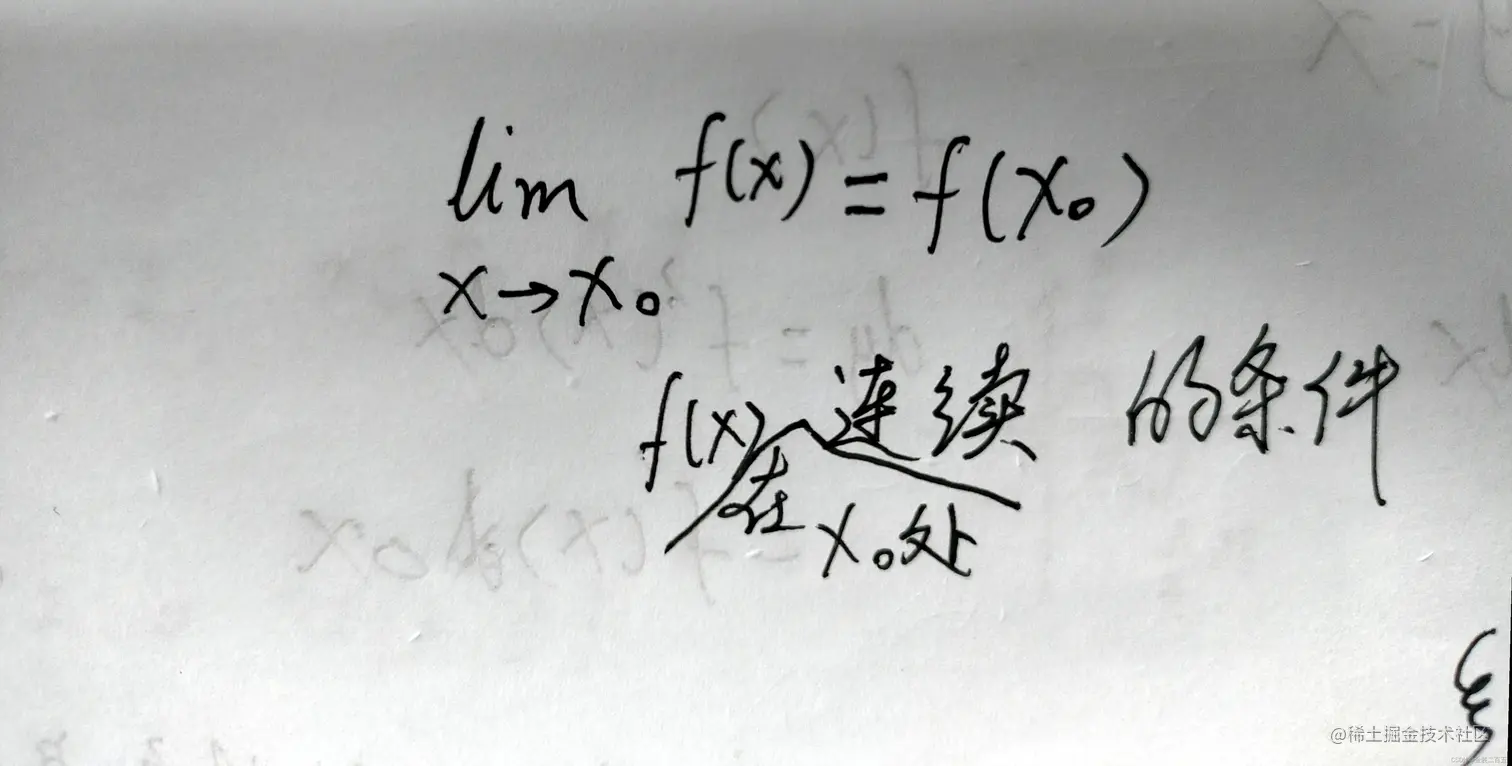 lim f(x) = f(x₀)
x→x₀
f(x) 在 x₀处 连续 的条件
@稀土掘金技术社区